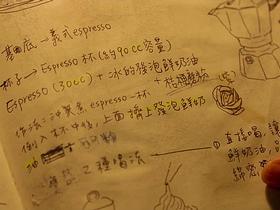 基底—義式espresso
杯子→ Espresso 杯(約90cc容量)
Espresso (30cc) + 冰的發泡鮮奶油
作法:沖煮espresso一杯 + 
倒入杯中後,上面擠上發泡鮮奶
油
2種喝法 ① 直接喝,讓
鮮奶油,品
綿密